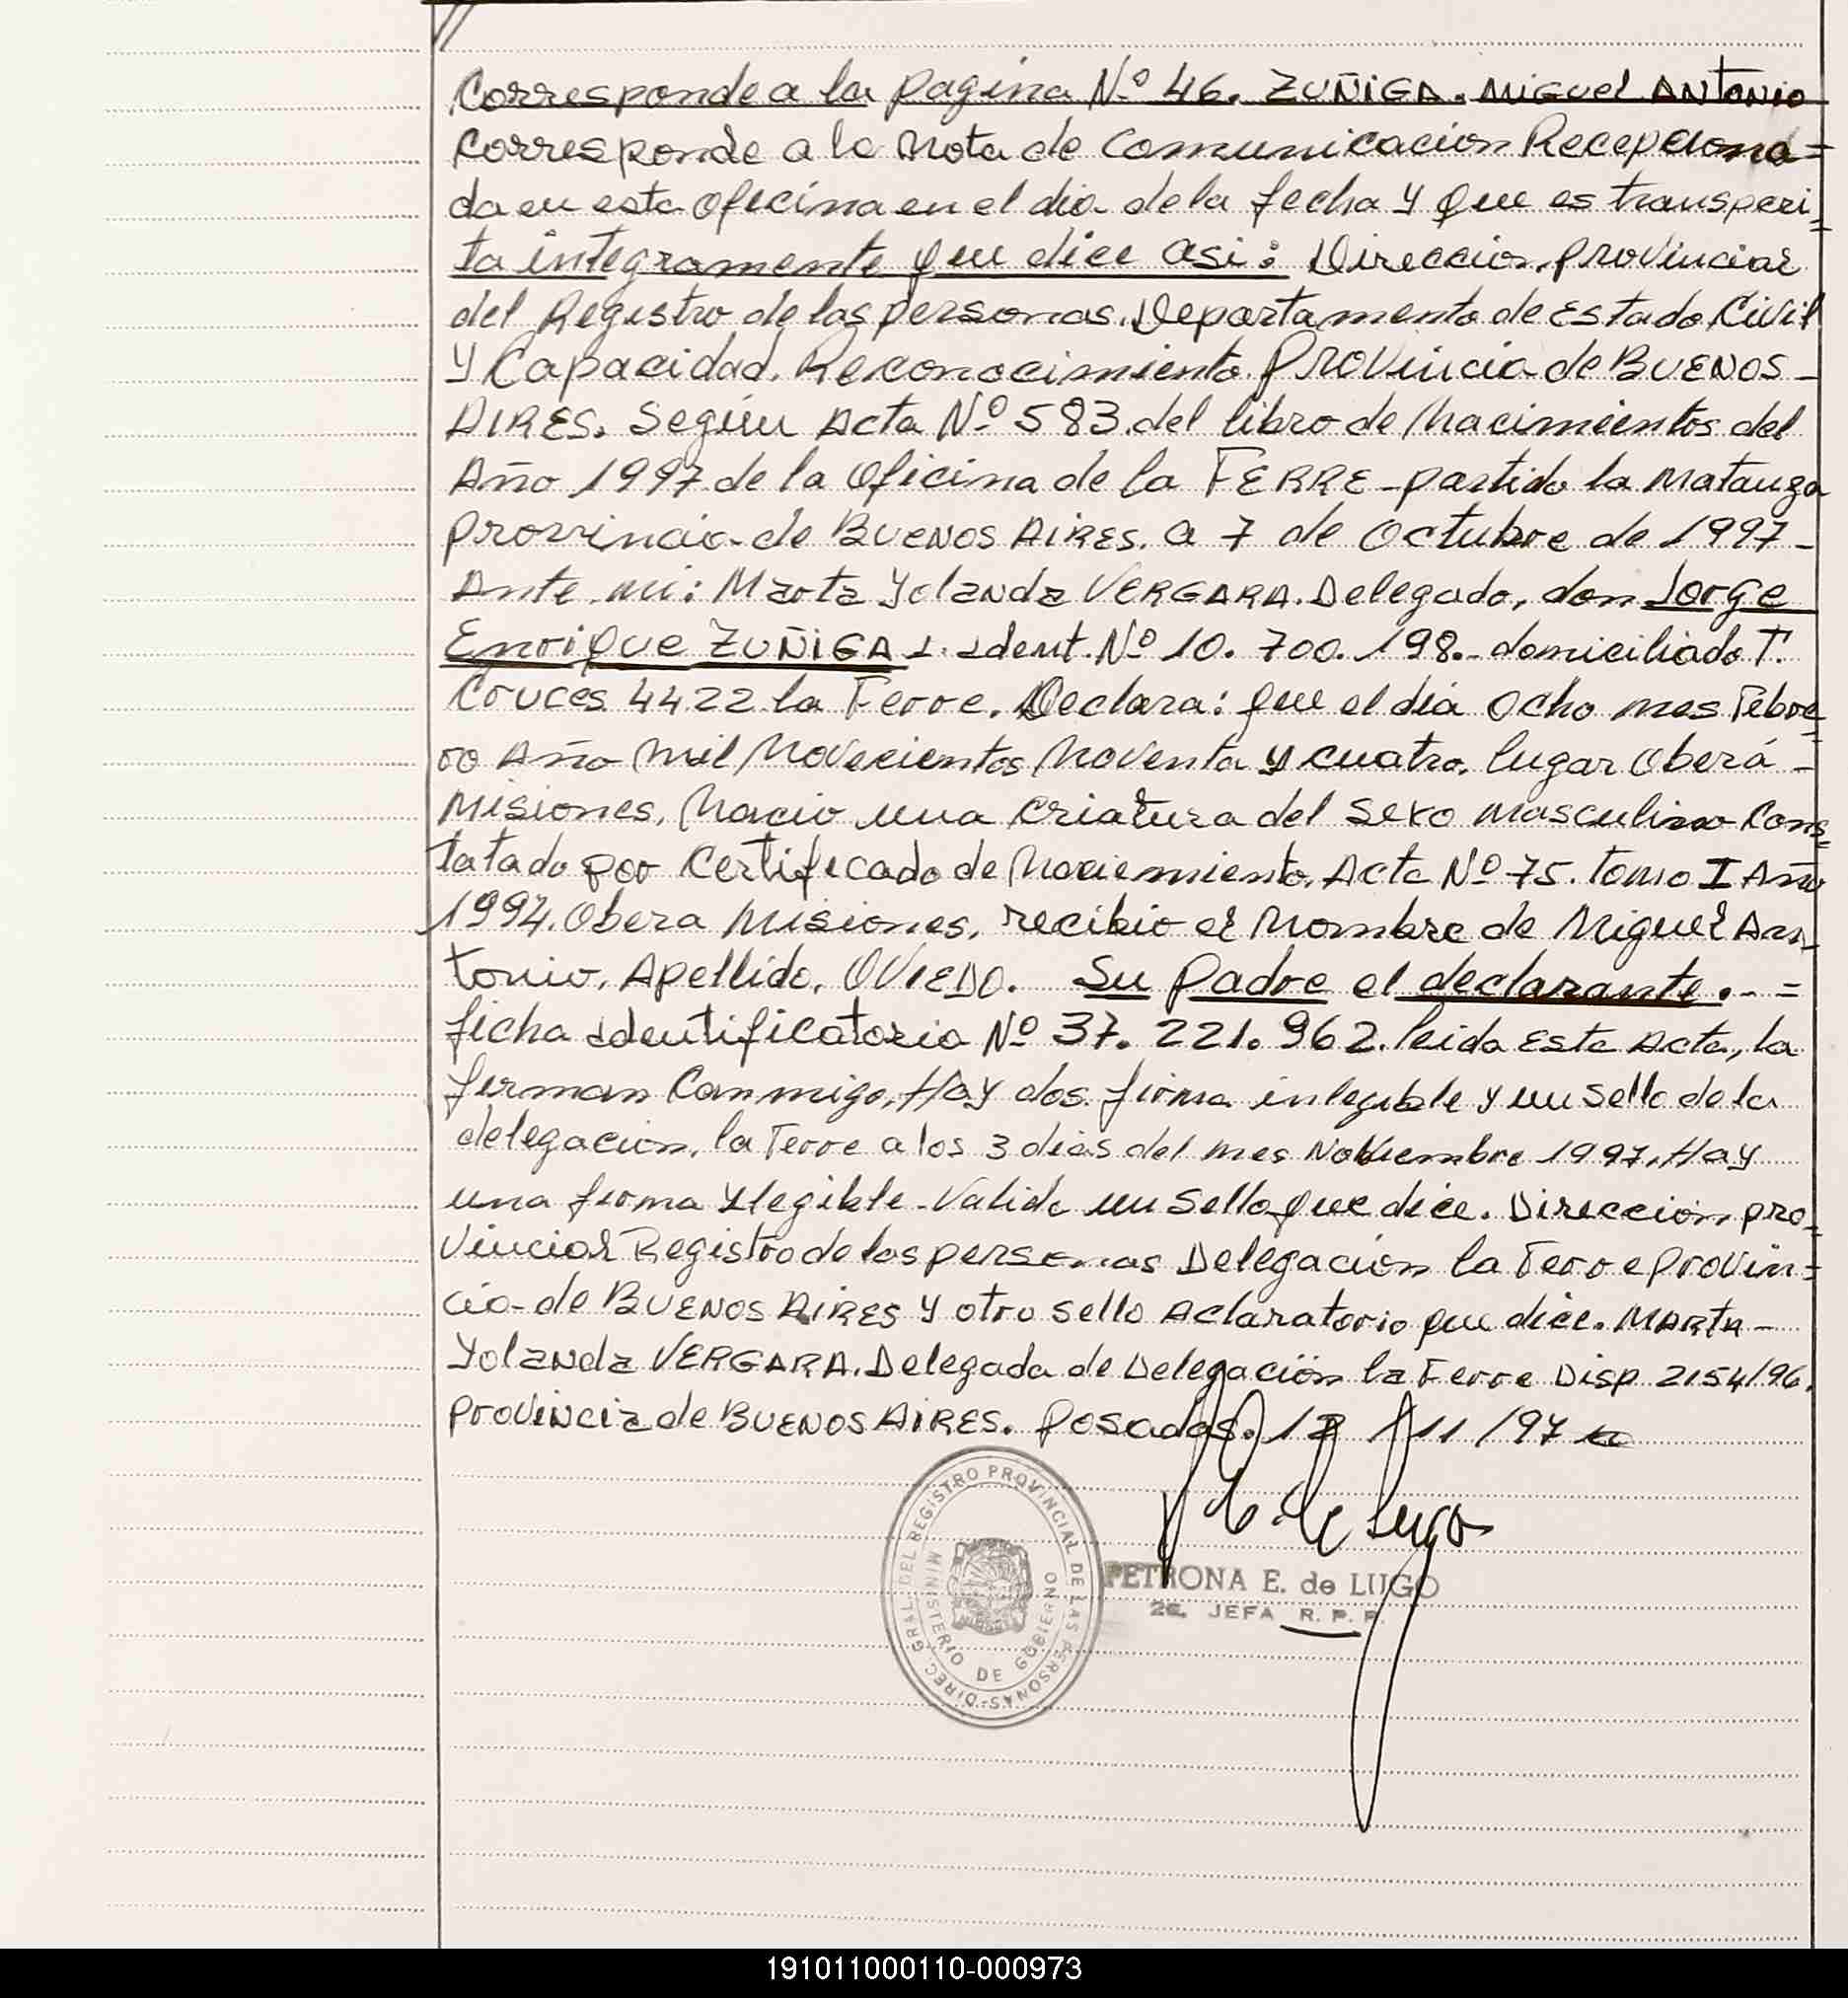 Corresponde a la pagina Nº 46. ZUÑIGA. Miguel ANTONIO
Corresponde a la Nota de Comunicacion Recepciona=
da en esta oficina en el dia de la fecha y que es transperi=
ta integramente que dice asi: Direccion, provincial
del Registro de las personas. Departamento de Estado Civil
y Capacidad. Reconocimiento. Provincia de BUENOS-
AIRES. Según Acta Nº 583 del libro de Nacimientos del
Año 1997 de la oficina de la FERRE-partido la Matanza
provincia de BUENOS AIRES. a 7 de octubre de 1997-
Ante mi: Marta Yolanda VERGARA. Delegado, don Jorge
Enrique ZUÑIGA I. Ident. Nº 10.700.198.- domiciliado T.
Cruces 4422 la Ferre. Declara: que el dia ocho mes Febre=
ro Año mil Novecientos Noventa y cuatro. lugar Oberá-
Misiones, Nacio una criatura del sexo masculino Cons=
tatado por Certificado de Naciemiento. Acta Nº 75. tomo I Año
1994. Obera Misiones, recibio el Nombre de Miguel An-
tonio. Apellido. OVIEDO. Su padre el declarante.-=
ficha identificatoria Nº 37.221.962. leida Esta Acta, la
firman Conmigo. Hay dos firma inlegible y un sello de la
delegacion. la Ferre a los 3 dias del mes Noviembre 1997. Hay
una firma Ylegible-Valida un sello que dice. Direccion pro=
vincial Registro de las personas Delegacion la Ferre provin=
cia-de BUENOS AIRES y otro sello Aclaratorio que dice. MARTA-
Yolanda VERGARA. Delegada de Delegación la Ferre Disp 2154/96.
provincia de BUENOS AIRES. Posadas. 12 /11 /97
DIREC. GRAL. DEL REGISTRO PROVINCIAL DE LAS PERSONAS-
MINISTERIO DE GOBIERNO
de Lugo
PETRONA E. de LUGO
2a. JEFA R. P. P.
191011000110-000973